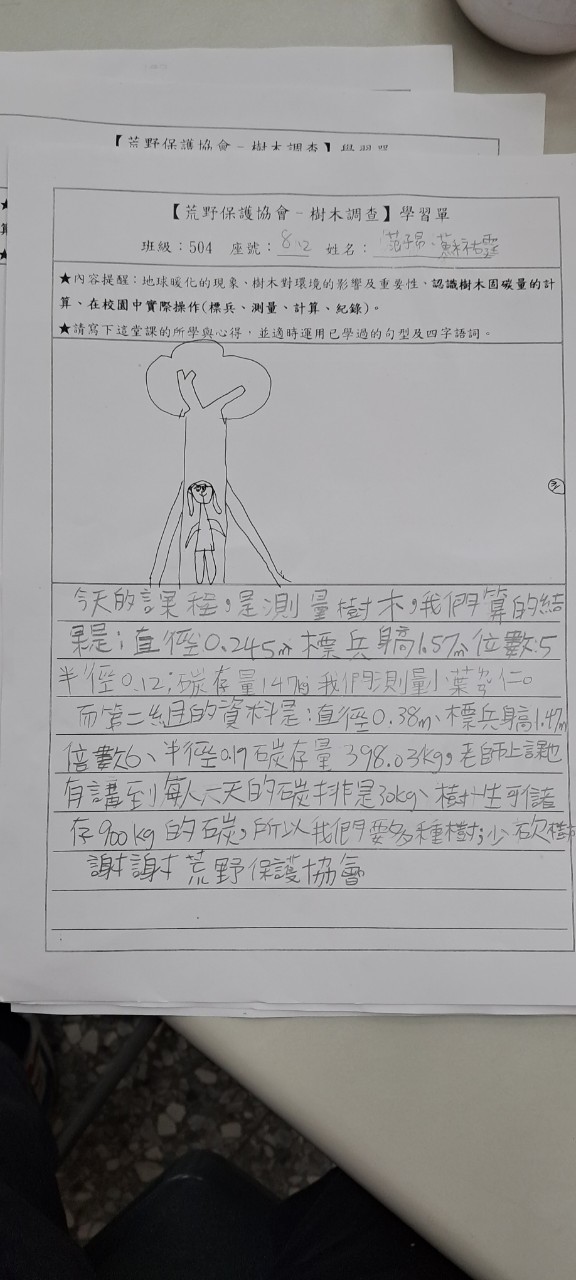 【荒野保護協會-樹木調查】學習單
【荒野保護協會-樹木調查】學習單
班級：504 座號：8、12 姓名：
★內容提醒：地球暖化的現象、樹木對環境的影響及重要性、認識樹木固碳量的計
算、在校園中實際操作(標兵、測量、計算、紀錄)。
★請寫下這堂課的所學與心得，並適時運用已學過的句型及四字語詞。
今天的課程，是測量樹木，我們算的結
果是；直徑0.245m 標兵身高1.57m位數:5
半徑0.12；碳存量147kg 我們測量小葉欖仁。
而第二組的資料是：直徑0.38m、標兵身高1.47m
倍數6、半徑0.19 石炭存量 398.03kg，老師上課也
有講到每人一天的碳排是30kg、樹一生可儲
存900kg的石炭，所以我們要多種樹；少砍樹
謝謝荒野保護協會